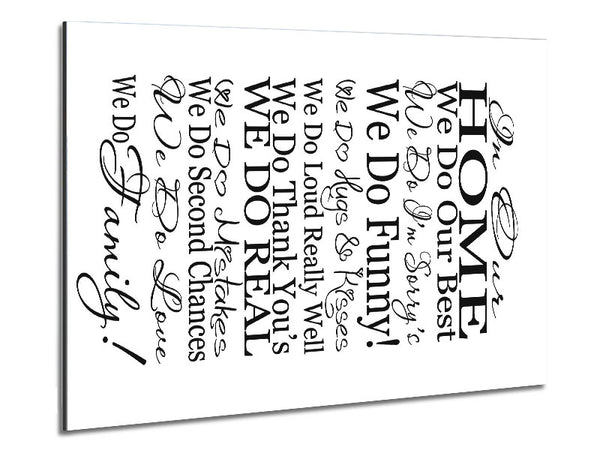 In Our
HOME
We Do Our Best
We Do I'm Sorry's
We Do Funny!
We Do Hugs & Kisses
We Do Loud Really Well
We Do Thank You's
WE DO REAL
We Do Mistakes
We Do Second Chances
We Do Love
We Do Family!